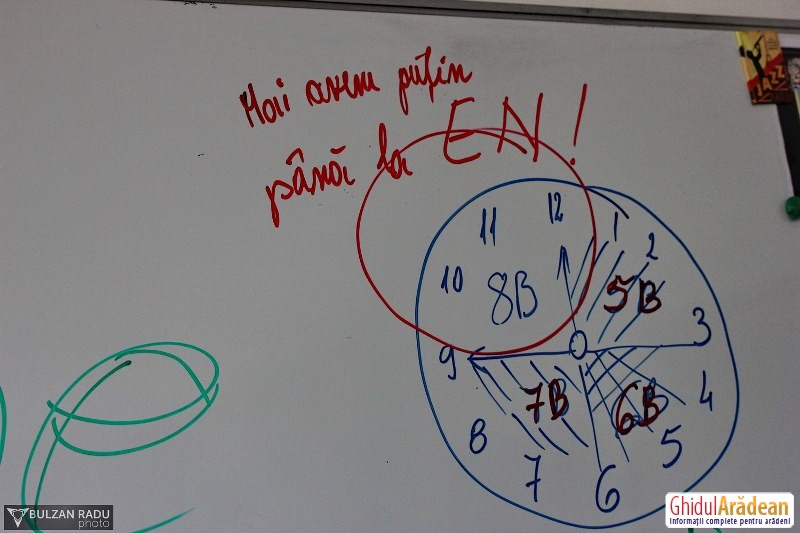 Mai avem puțin
până la EN!
12
11
1
10
2
8B
5B
9
3
7B
6B
8
4
7
5
6
JAZZ
BULZAN RADU
photo
GhidulArădean
Informații complete pentru arădeni